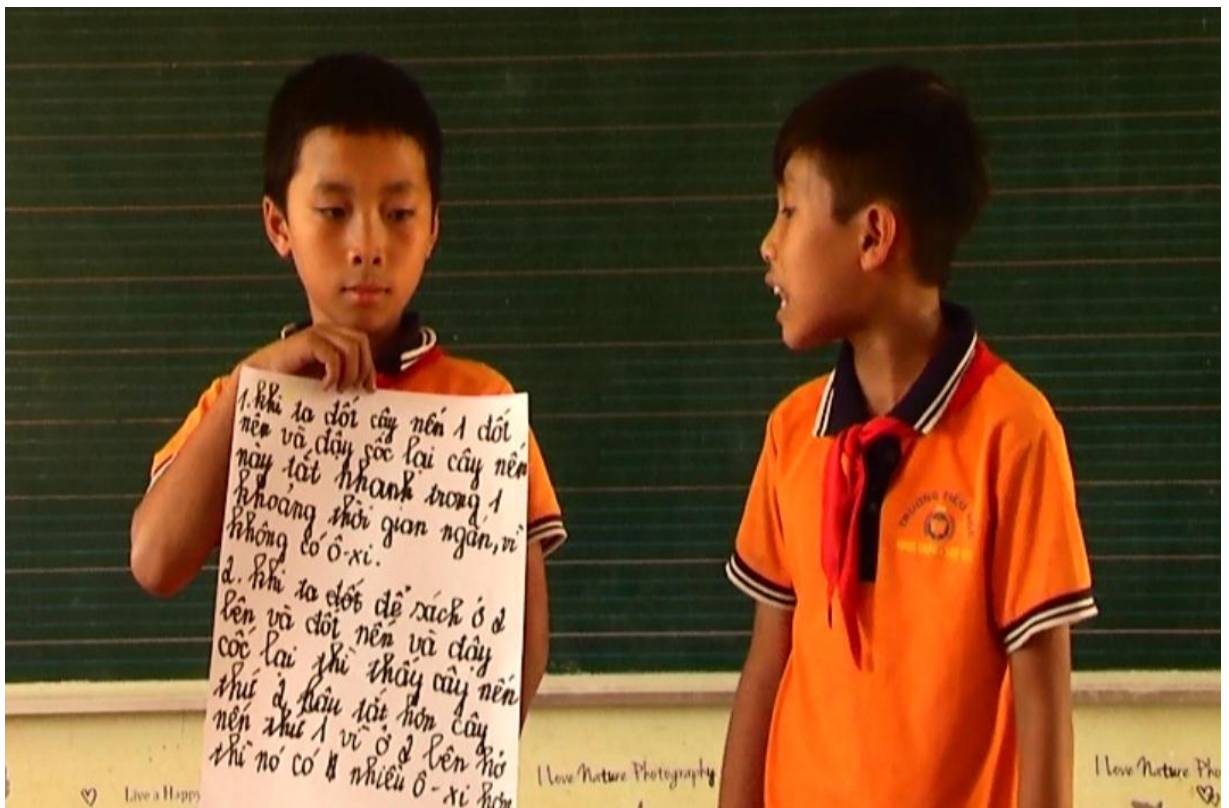 1. Khi ta đốt cây nến 1 đốt
nến và đậy cốc lại cây nến
này tắt nhanh trong 1
khoảng thời gian ngắn, vì
không có ô-xi.
2. Khi ta đốt để sách ở 2
bên và đốt nến và đậy
cốc lại thì thấy cây nến
thứ 2 lâu tắt hơn cây
nến thứ 1 vì ở 2 bên hở
thì nó có nhiều ô-xi hơn
TRƯỜNG TIỂU HỌC
Live a Happy
I Love Nature Photography
I Love Nature Pho